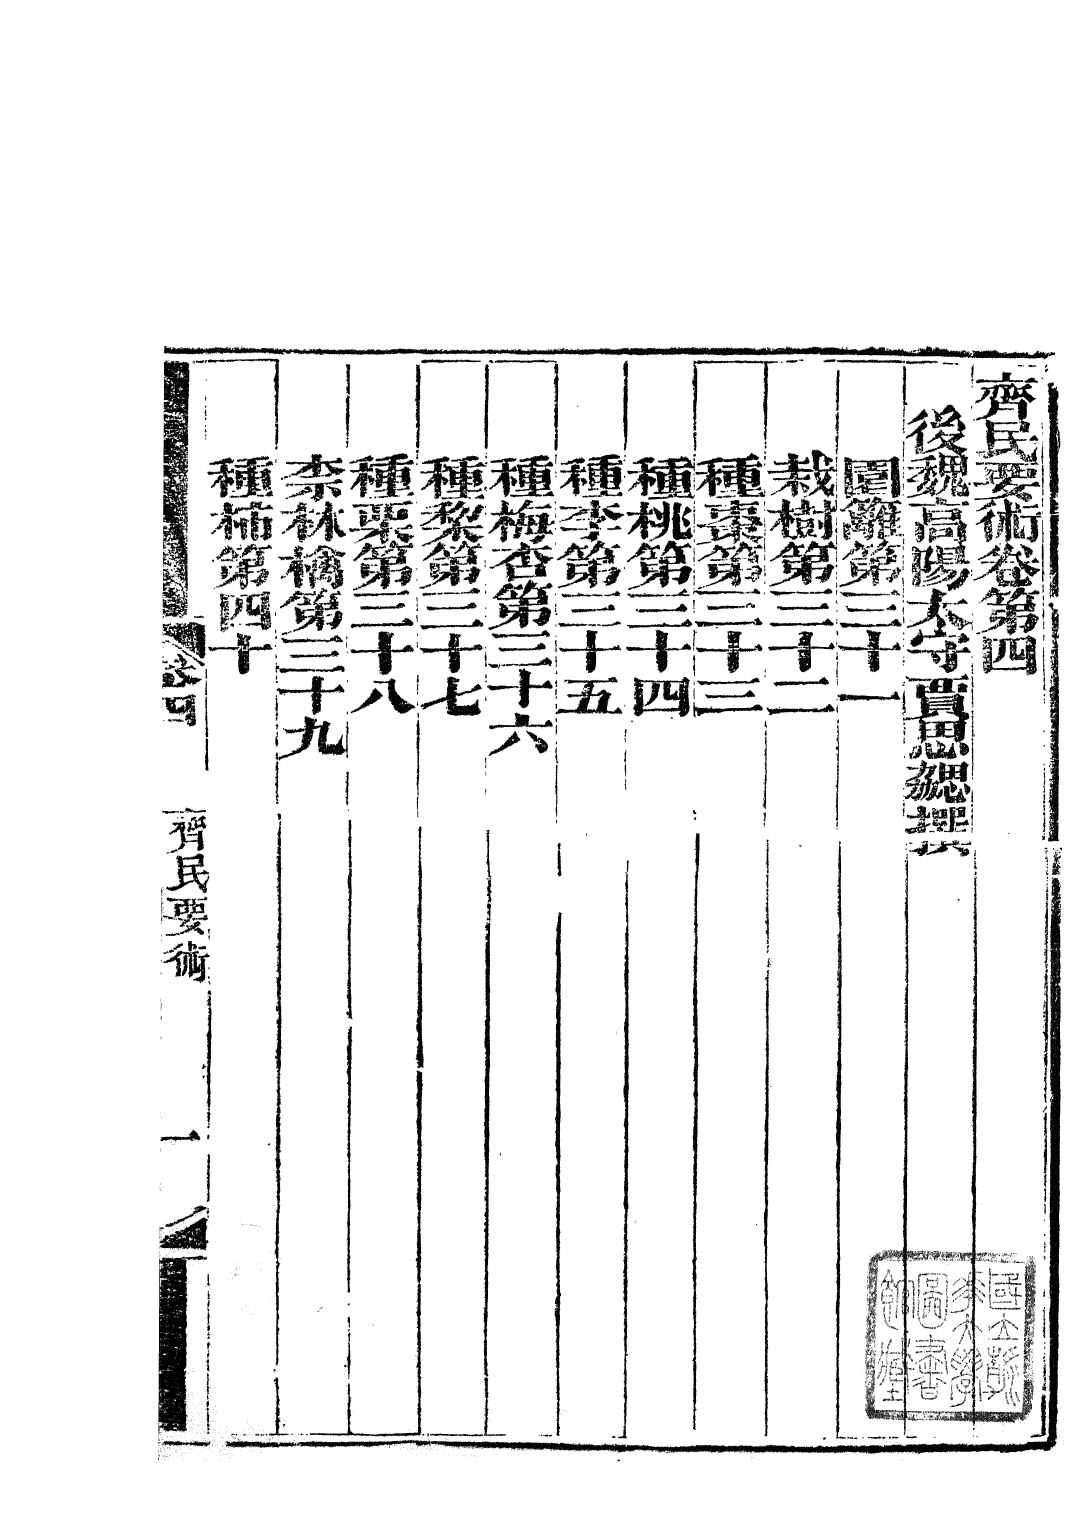 齊民要術卷第四
後魏高陽太守賈思勰撰
園籬第三十一
栽樹第三十二
種棗第三十三
種桃第三十四
種李第三十五
種梅杏第三十六
種梨第三十七
種栗第三十八
柰林檎第三十九
種柿第四十
卷四
齊民要術
一
國立
大學
圖書